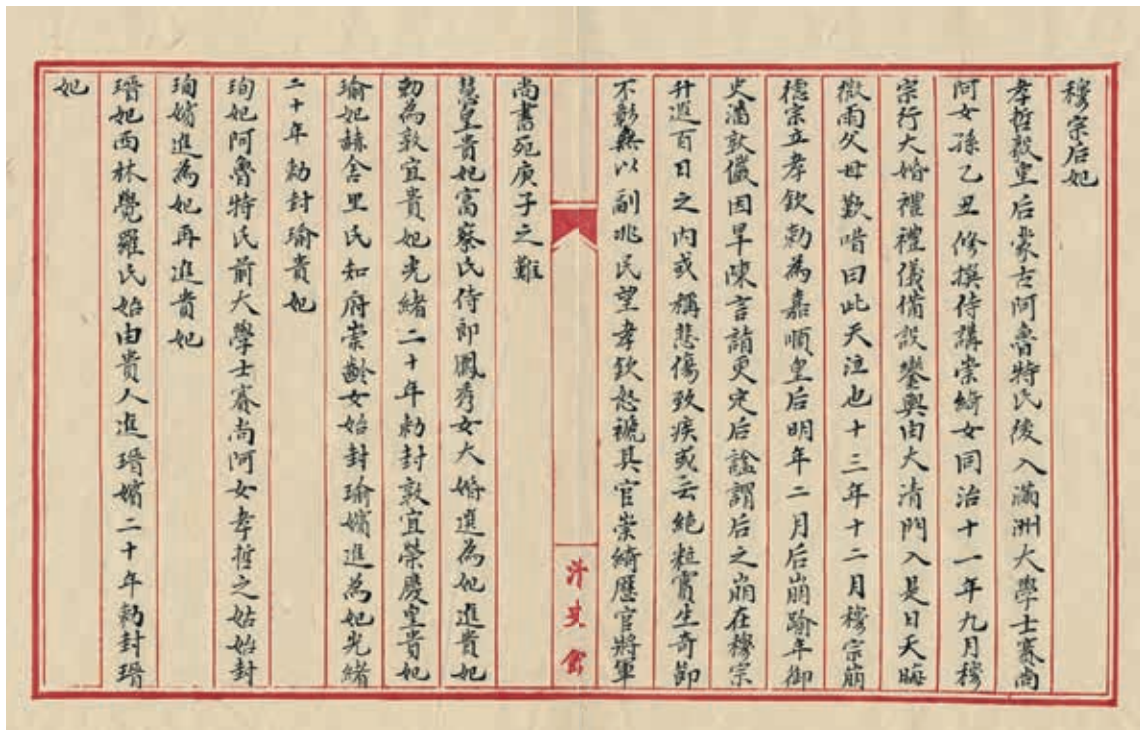 穆宗后妃
孝哲毅皇后蒙古阿魯特氏後入滿洲大學士賽尚
阿女孫乙丑修撰侍講崇綺女同治十一年九月穆
宗行大婚禮禮儀備設鑾輿由大清門入是日天晦
微雨父母歎唶曰此天泣也十三年十二月穆宗崩
德宗立孝欽勅為嘉順皇后明年二月后崩踰年御
史潘敦儼因旱陳言請更定后諡謂后之崩在穆宗
升遐百日之內或稱悲傷致疾或云絕粒霣生奇節
不彰無以副兆民望孝欽怒褫其官崇綺歷官將軍
清史館
尚書死庚子之難
慧皇貴妃富察氏侍郎鳳秀女大婚選為妃進貴妃
勅為敦宜貴妃光緒二十年勅封敦宜榮慶皇貴妃
瑜妃赫舍里氏知府崇齡女始封瑜嬪進為妃光緒
二十年勅封瑜貴妃
珣妃阿魯特氏前大學士賽尚阿女孝哲之姑始封
珣嬪進為妃再進貴妃
瑨妃西林覺羅氏始由貴人進瑨嬪二十年勅封瑨
妃